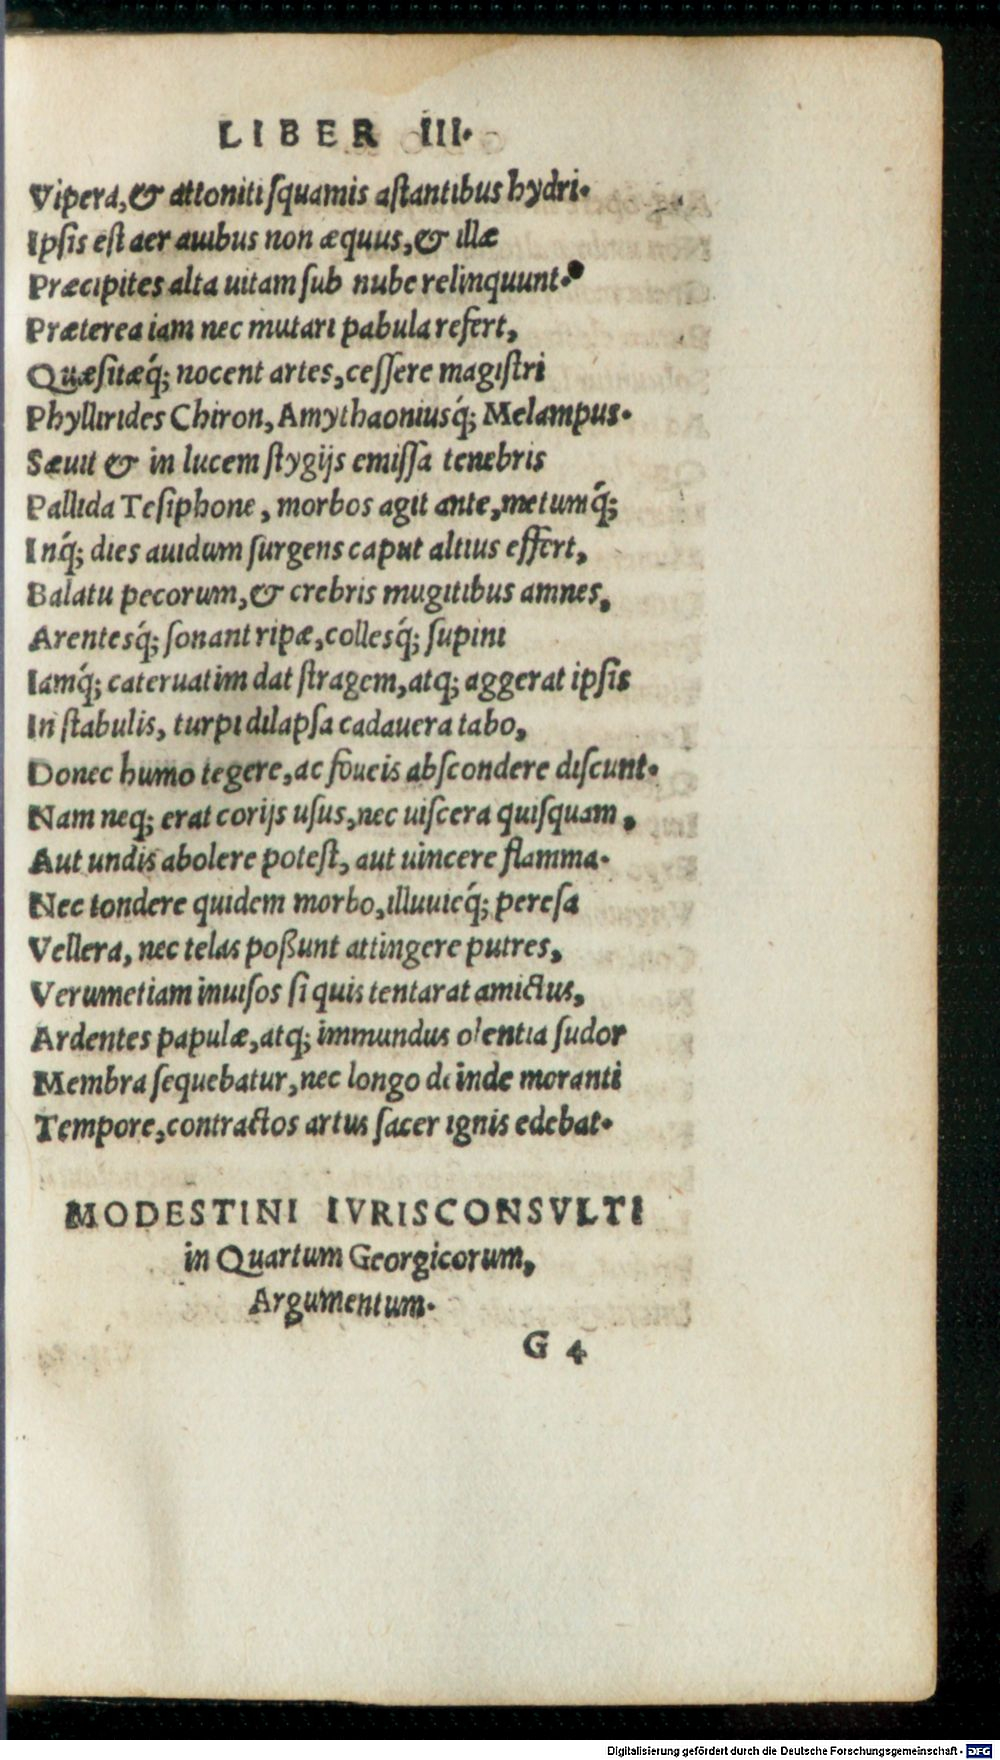 LIBER III.
Vipera, & attoniti squamis astantibus hydri.
Ipsis est aer auibus non æquus, & illæ
Præcipites alta uitam sub nube relinquunt.
Præterea iam nec mutari pabula refert,
Quæsitæq́; nocent artes, cessere magistri
Phyllirides Chiron, Amythaoniusq́; Melampus.
Sæuit & in lucem stygijs emissa tenebris
Pallida Tesiphone, morbos agit ante, metumq́;
Inq́; dies auidum surgens caput altius effert,
Balatu pecorum, & crebris mugitibus amnes,
Arentesq́; sonant ripæ, collesq́; supini
Iamq́; cateruatim dat stragem, atq; aggerat ipsis
In stabulis, turpi dilapsa cadauera tabo,
Donec humo tegere, ac foueis abscondere discunt.
Nam neq; erat corijs usus, nec uiscera quisquam,
Aut undis abolere potest, aut uincere flamma.
Nec tondere quidem morbo, illuuieq́; peresa
Vellera, nec telas poßunt attingere putres,
Verumetiam inuisos si quis tentarat amictus,
Ardentes papulæ, atq; immundus olentia sudor
Membra sequebatur, nec longo deinde moranti
Tempore, contractos artus sacer ignis edebat.
MODESTINI IVRISCONSVLTI
in Quartum Georgicorum,
Argumentum.
G 4
Digitalisierung gefördert durch die Deutsche Forschungsgemeinschaft - DFG